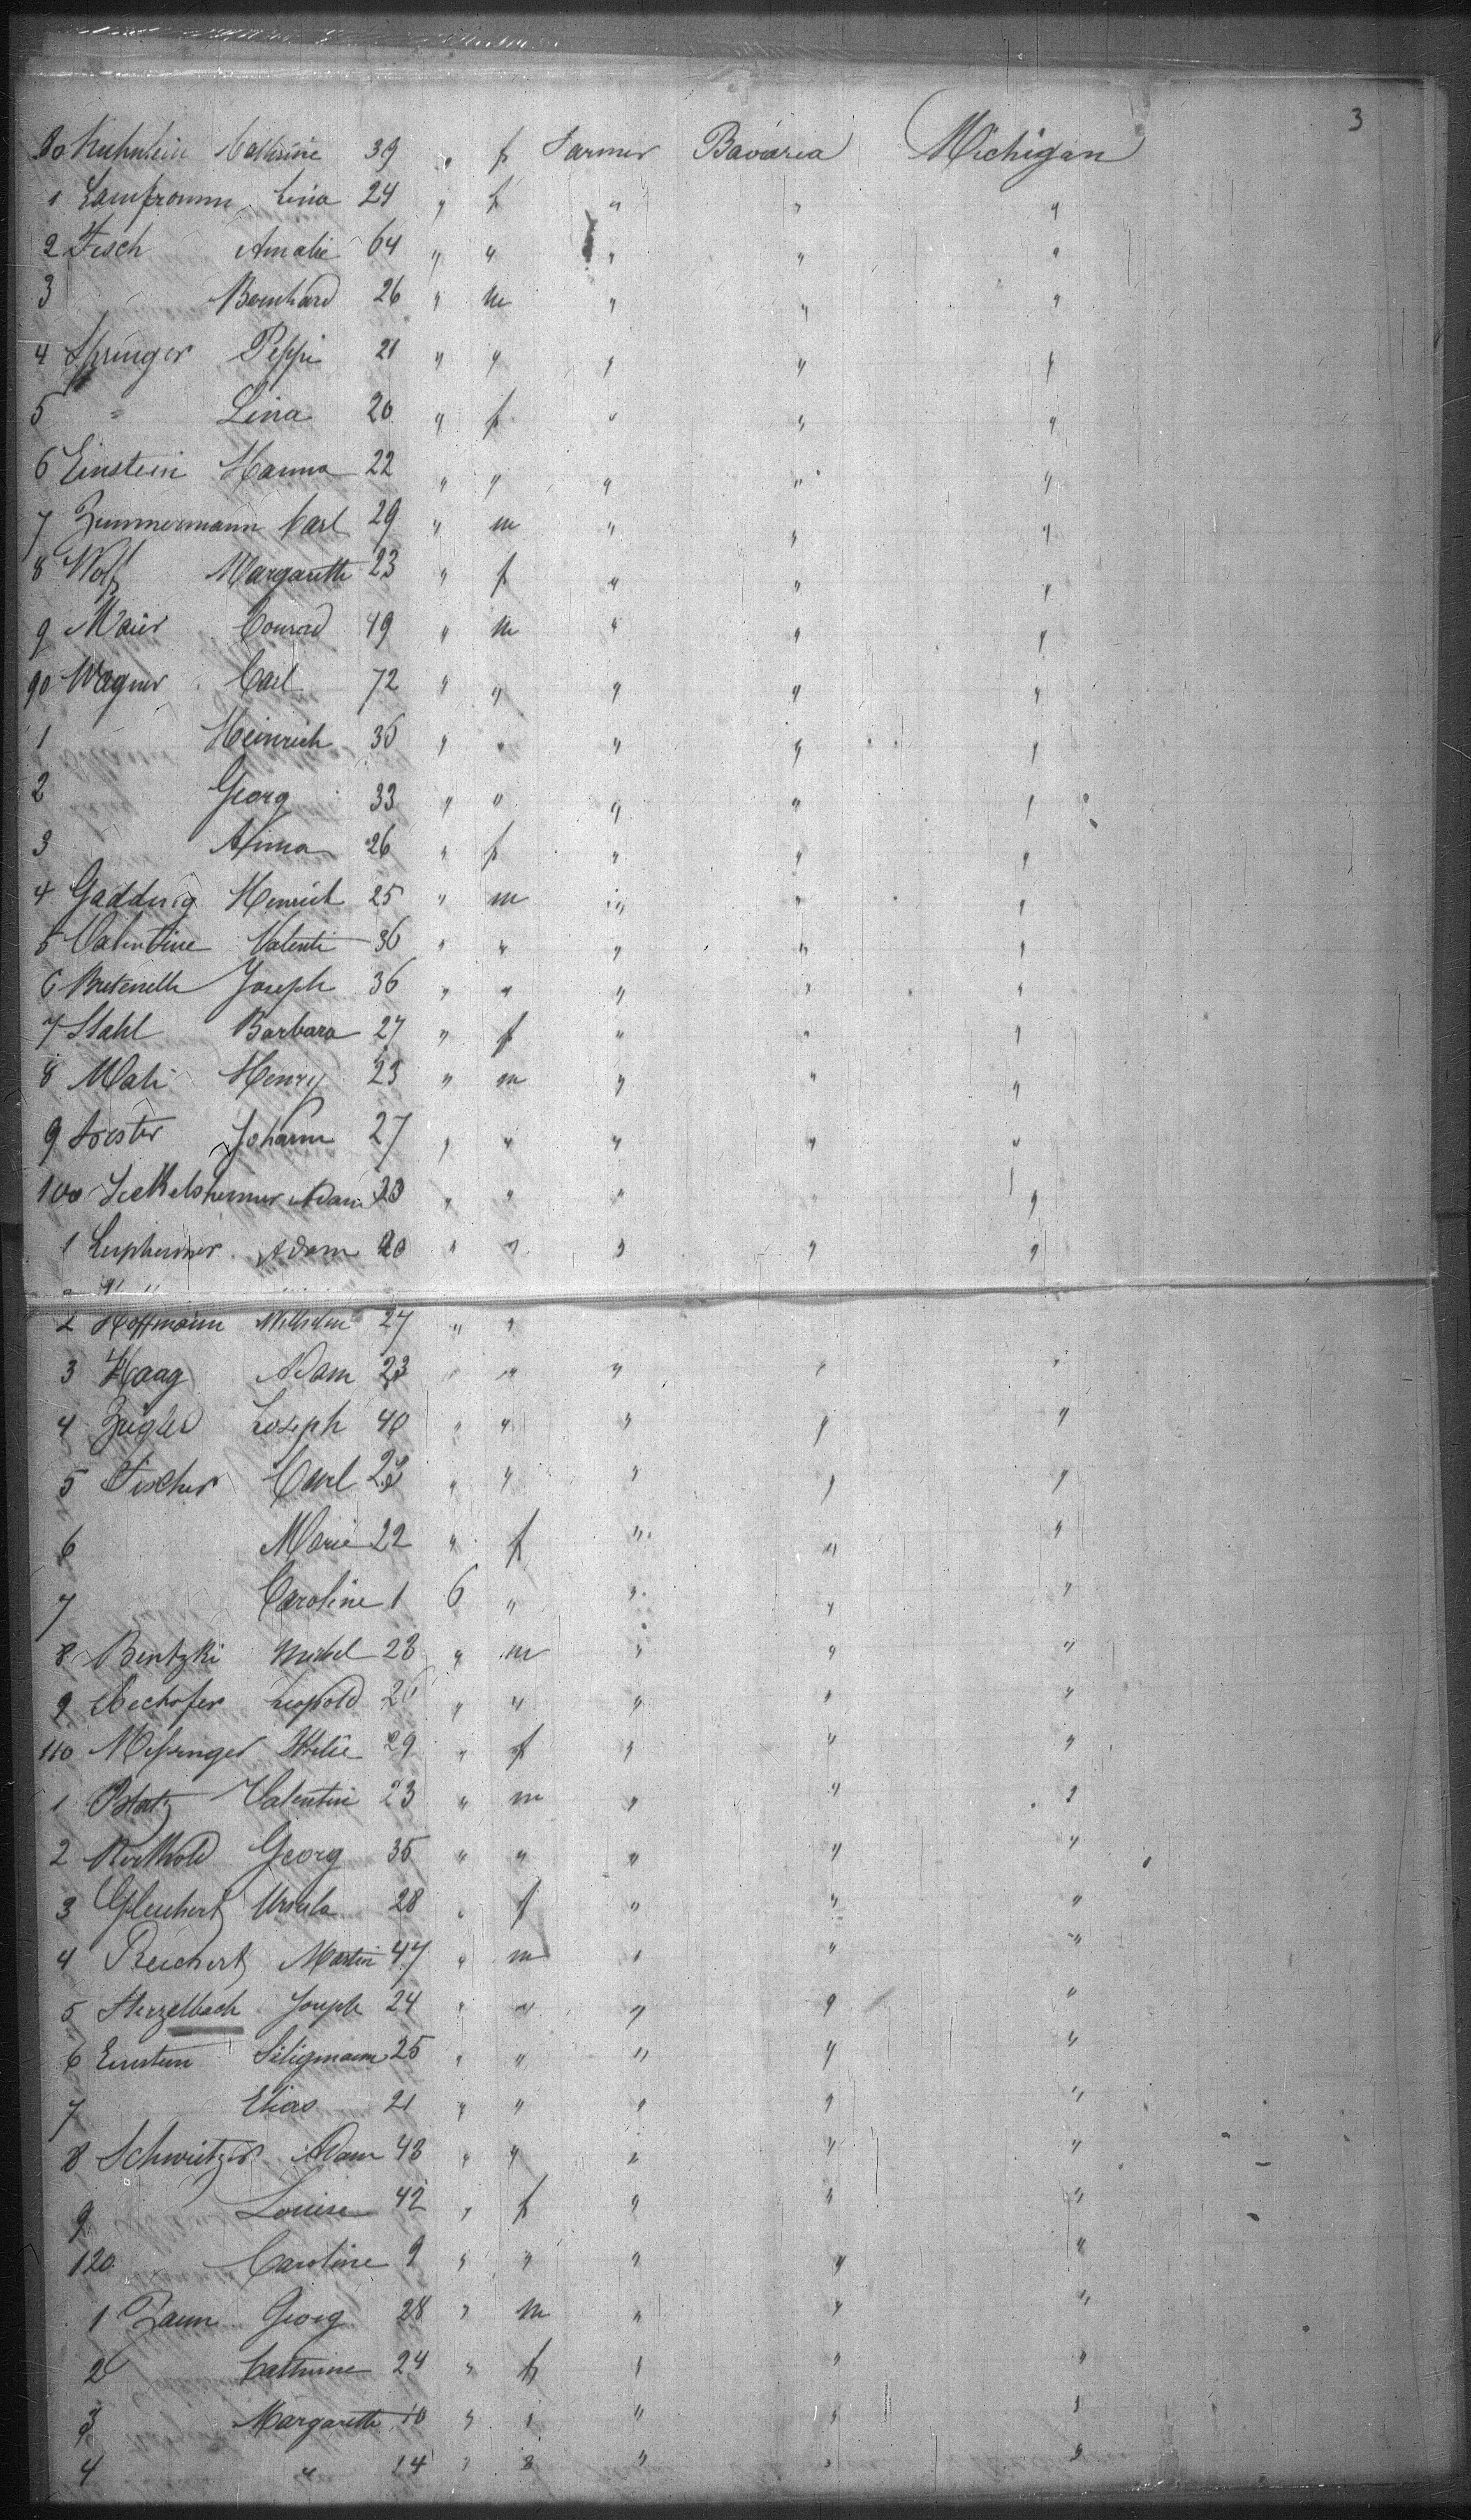 3
80 Kuhnlein Catherine 39 " f Farmer Bavaria Michigan
1 Lamfromm Lina 24 " f " " "
2 Fisch Amalie 64 " " " " "
3 Bernhard 26 " m " " "
4 Springer Peppi 21 " " " " "
5 " Lina 20 " f " " "
6 Einstein Hanna 22 " " " " "
7 Zimmermann Carl 29 " m " " "
8 Wolf Margareth 23 " f " " "
9 Maier Conrad 49 " m " " "
90 Wagner Carl 72 " " " " "
1 Heinrich 36 " " " " "
2 Georg 33 " " " " "
3 26 " f " " "
4 Henrich 25 " m " " "
5 Valentine Valenti 36 " " " " "
6 Joseph 36 " " " " "
7 Stahl Barbara 27 " f " " "
8 Mati Henry 23 " m " " "
9 Johann 27 " " " " "
100 Adam 23 " " " " "
1 Adam 20 " " " " "
2 Hoffmann Wilhelm 27 " "
3 Haag Adam 23 " " " " "
4 Joseph 40 " " " " "
5 Fischer Carl 23 " " " " "
6 Marie 22 " f " " "
7 Caroline 1 6 " " " "
8 Bentzki Michel 23 " m " " "
9 Leopold 26 " " " " "
110 29 " f " " "
1 Valentin 23 " m " " "
2 Georg 35 " " " " "
3 Ursula 28 " f " " "
4 Reichert Martin 47 " m " " "
5 Joseph 24 " " " " "
6 Einstein Seligmann 25 " " " " "
7 Elias 21 " " " " "
8 Schweitzer Adam 43 " " " " "
9 Louise 42 " f " " "
120 Caroline 9 " " " " "
1 Zaun Georg 28 " m " " "
2 Catherine 24 " f " " "
3 Margareth 10 " " " " "
4 " 14 " " " " "